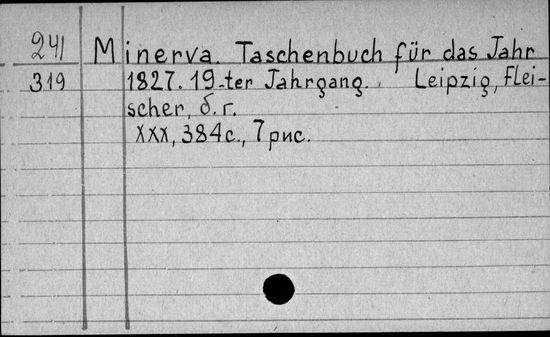 241 Minerva. Taschenbuch für das Jahr
319 1827. 19-ter Jahrgang. Leipzig, Flei-
scher, б.г.
XXX, 384 с., 7 рис.